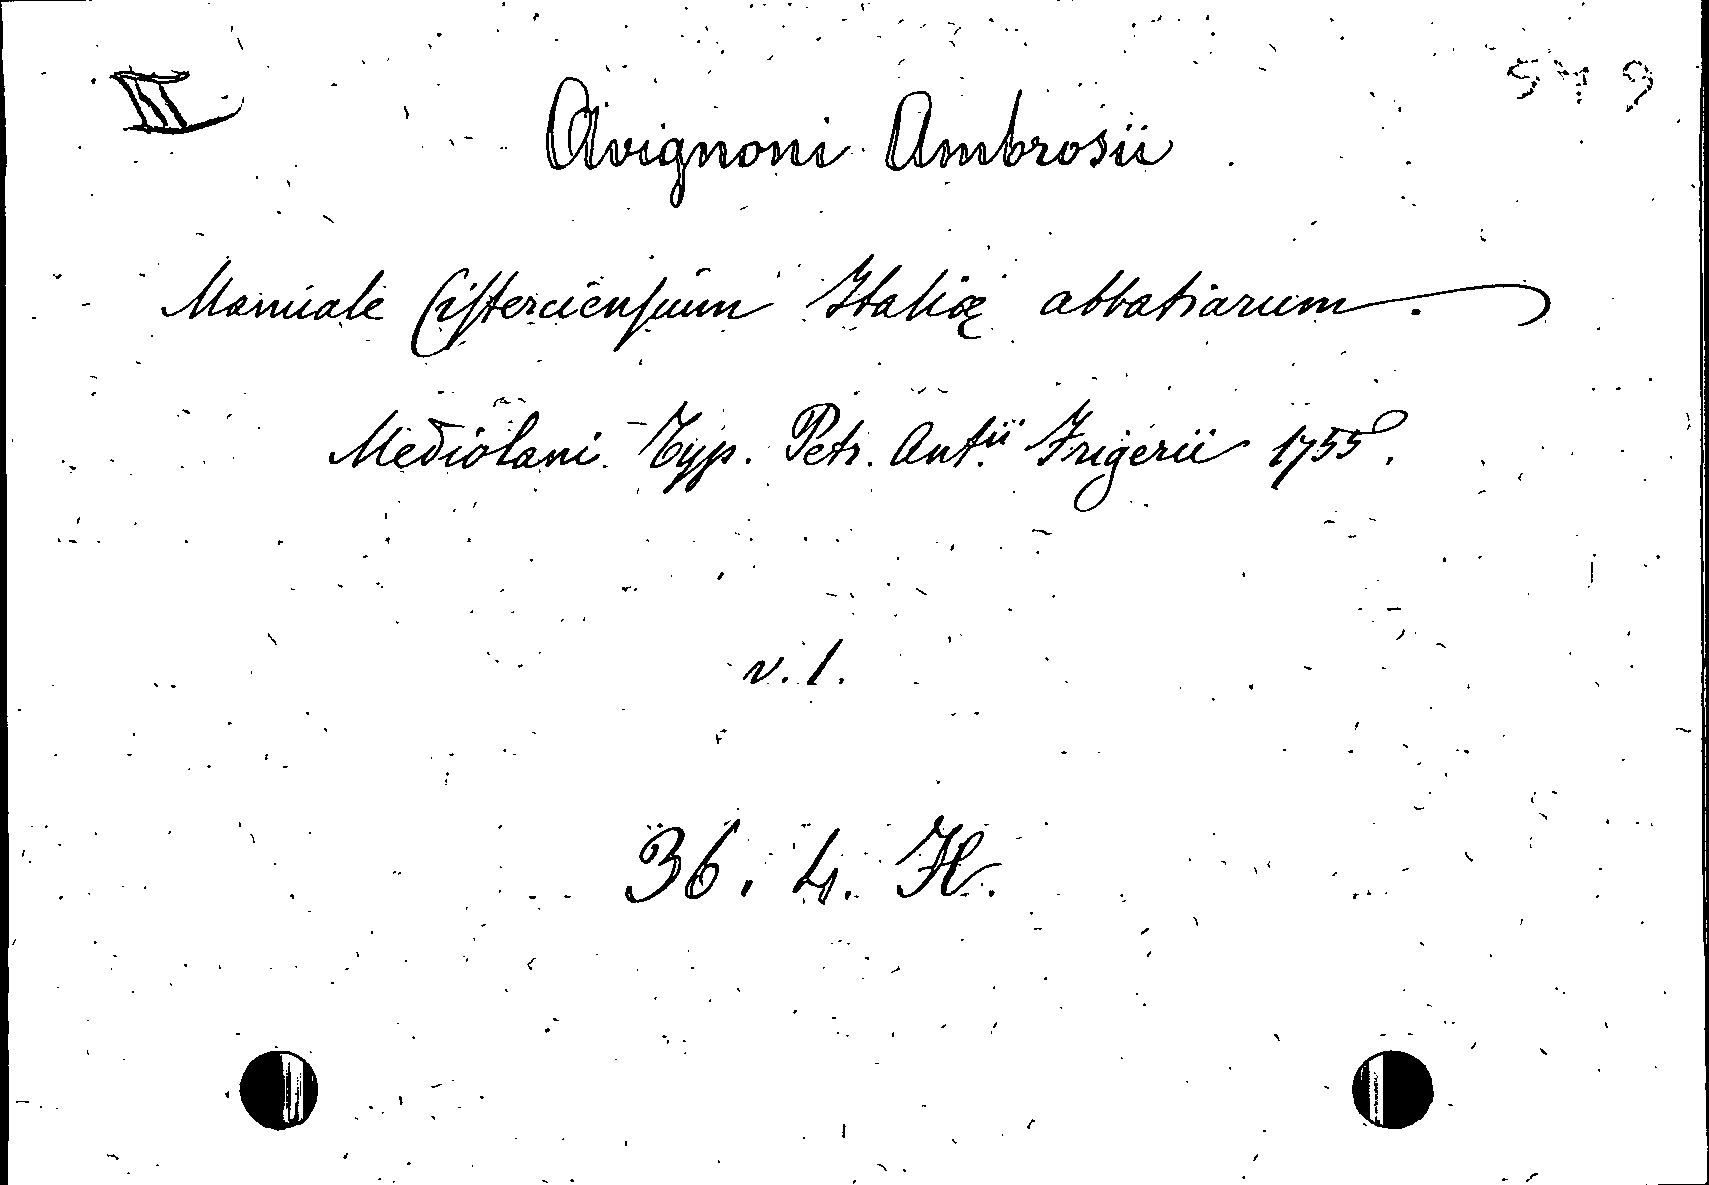 III 549
Avignoni Ambrosii
Manuale Cisterciensium Italiæ abbatiarum.
Mediolani Typ. Petr. Ant.ii Frigerii 1755.
v. 1.
36. 4. H.